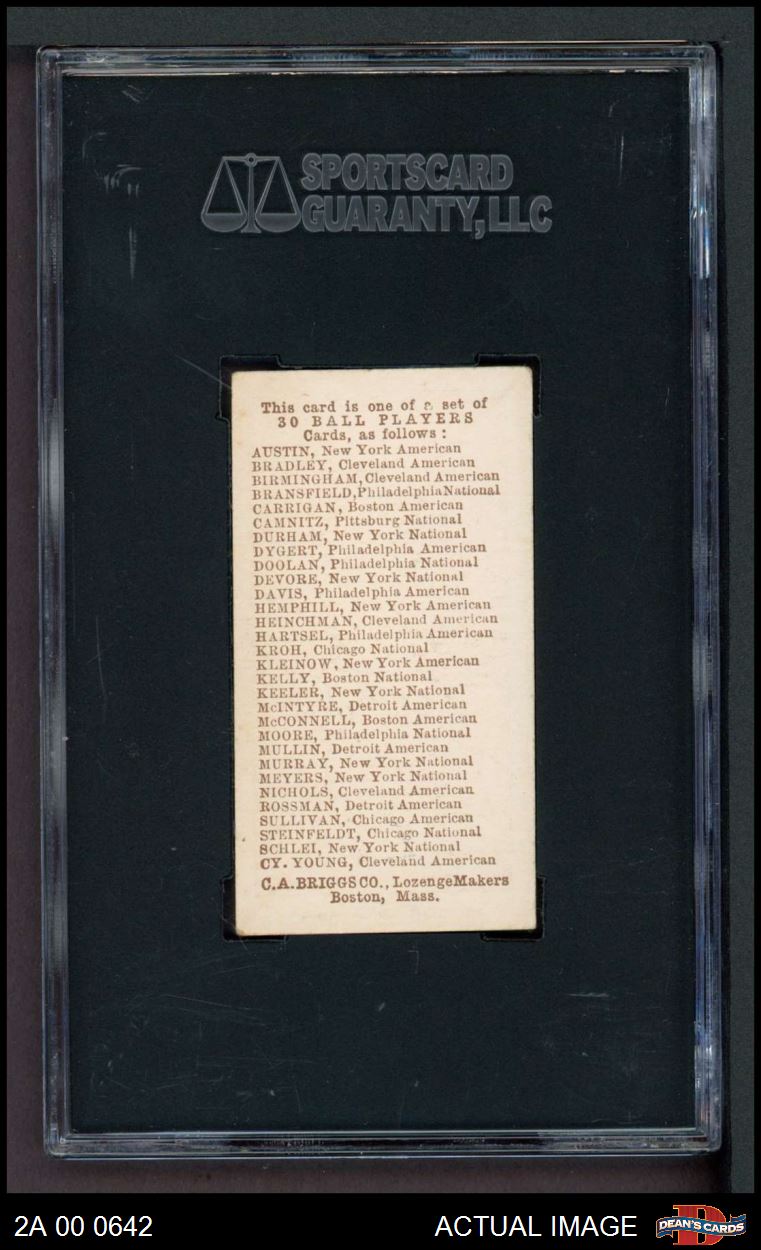 SPORTSCARD
GUARANTY, LLC
This card is one of a set of
30 BALL PLAYERS
Cards, as follows :
AUSTIN, New York American
BRADLEY, Cleveland American
BIRMINGHAM, Cleveland American
BRANSFIELD, Philadelphia National
CARRIGAN, Boston American
CAMNITZ, Pittsburg National
DURHAM, New York National
DYGERT, Philadelphia American
DOOLAN, Philadelphia National
DEVORE, New York National
DAVIS, Philadelphia American
HEMPHILL, New York American
HEINCHMAN, Cleveland American
HARTSEL, Philadelphia American
KROH, Chicago National
KLEINOW, New York American
KELLY, Boston National
KEELER, New York National
McINTYRE, Detroit American
McCONNELL, Boston American
MOORE, Philadelphia National
MULLIN, Detroit American
MURRAY, New York National
MEYERS, New York National
NICHOLS, Cleveland American
ROSSMAN, Detroit American
SULLIVAN, Chicago American
STEINFELDT, Chicago National
SCHLEI, New York National
CY. YOUNG, Cleveland American
C.A. BRIGGS CO., Lozenge Makers
Boston, Mass.
2A 00 0642
ACTUAL IMAGE
DEAN'S CARDS